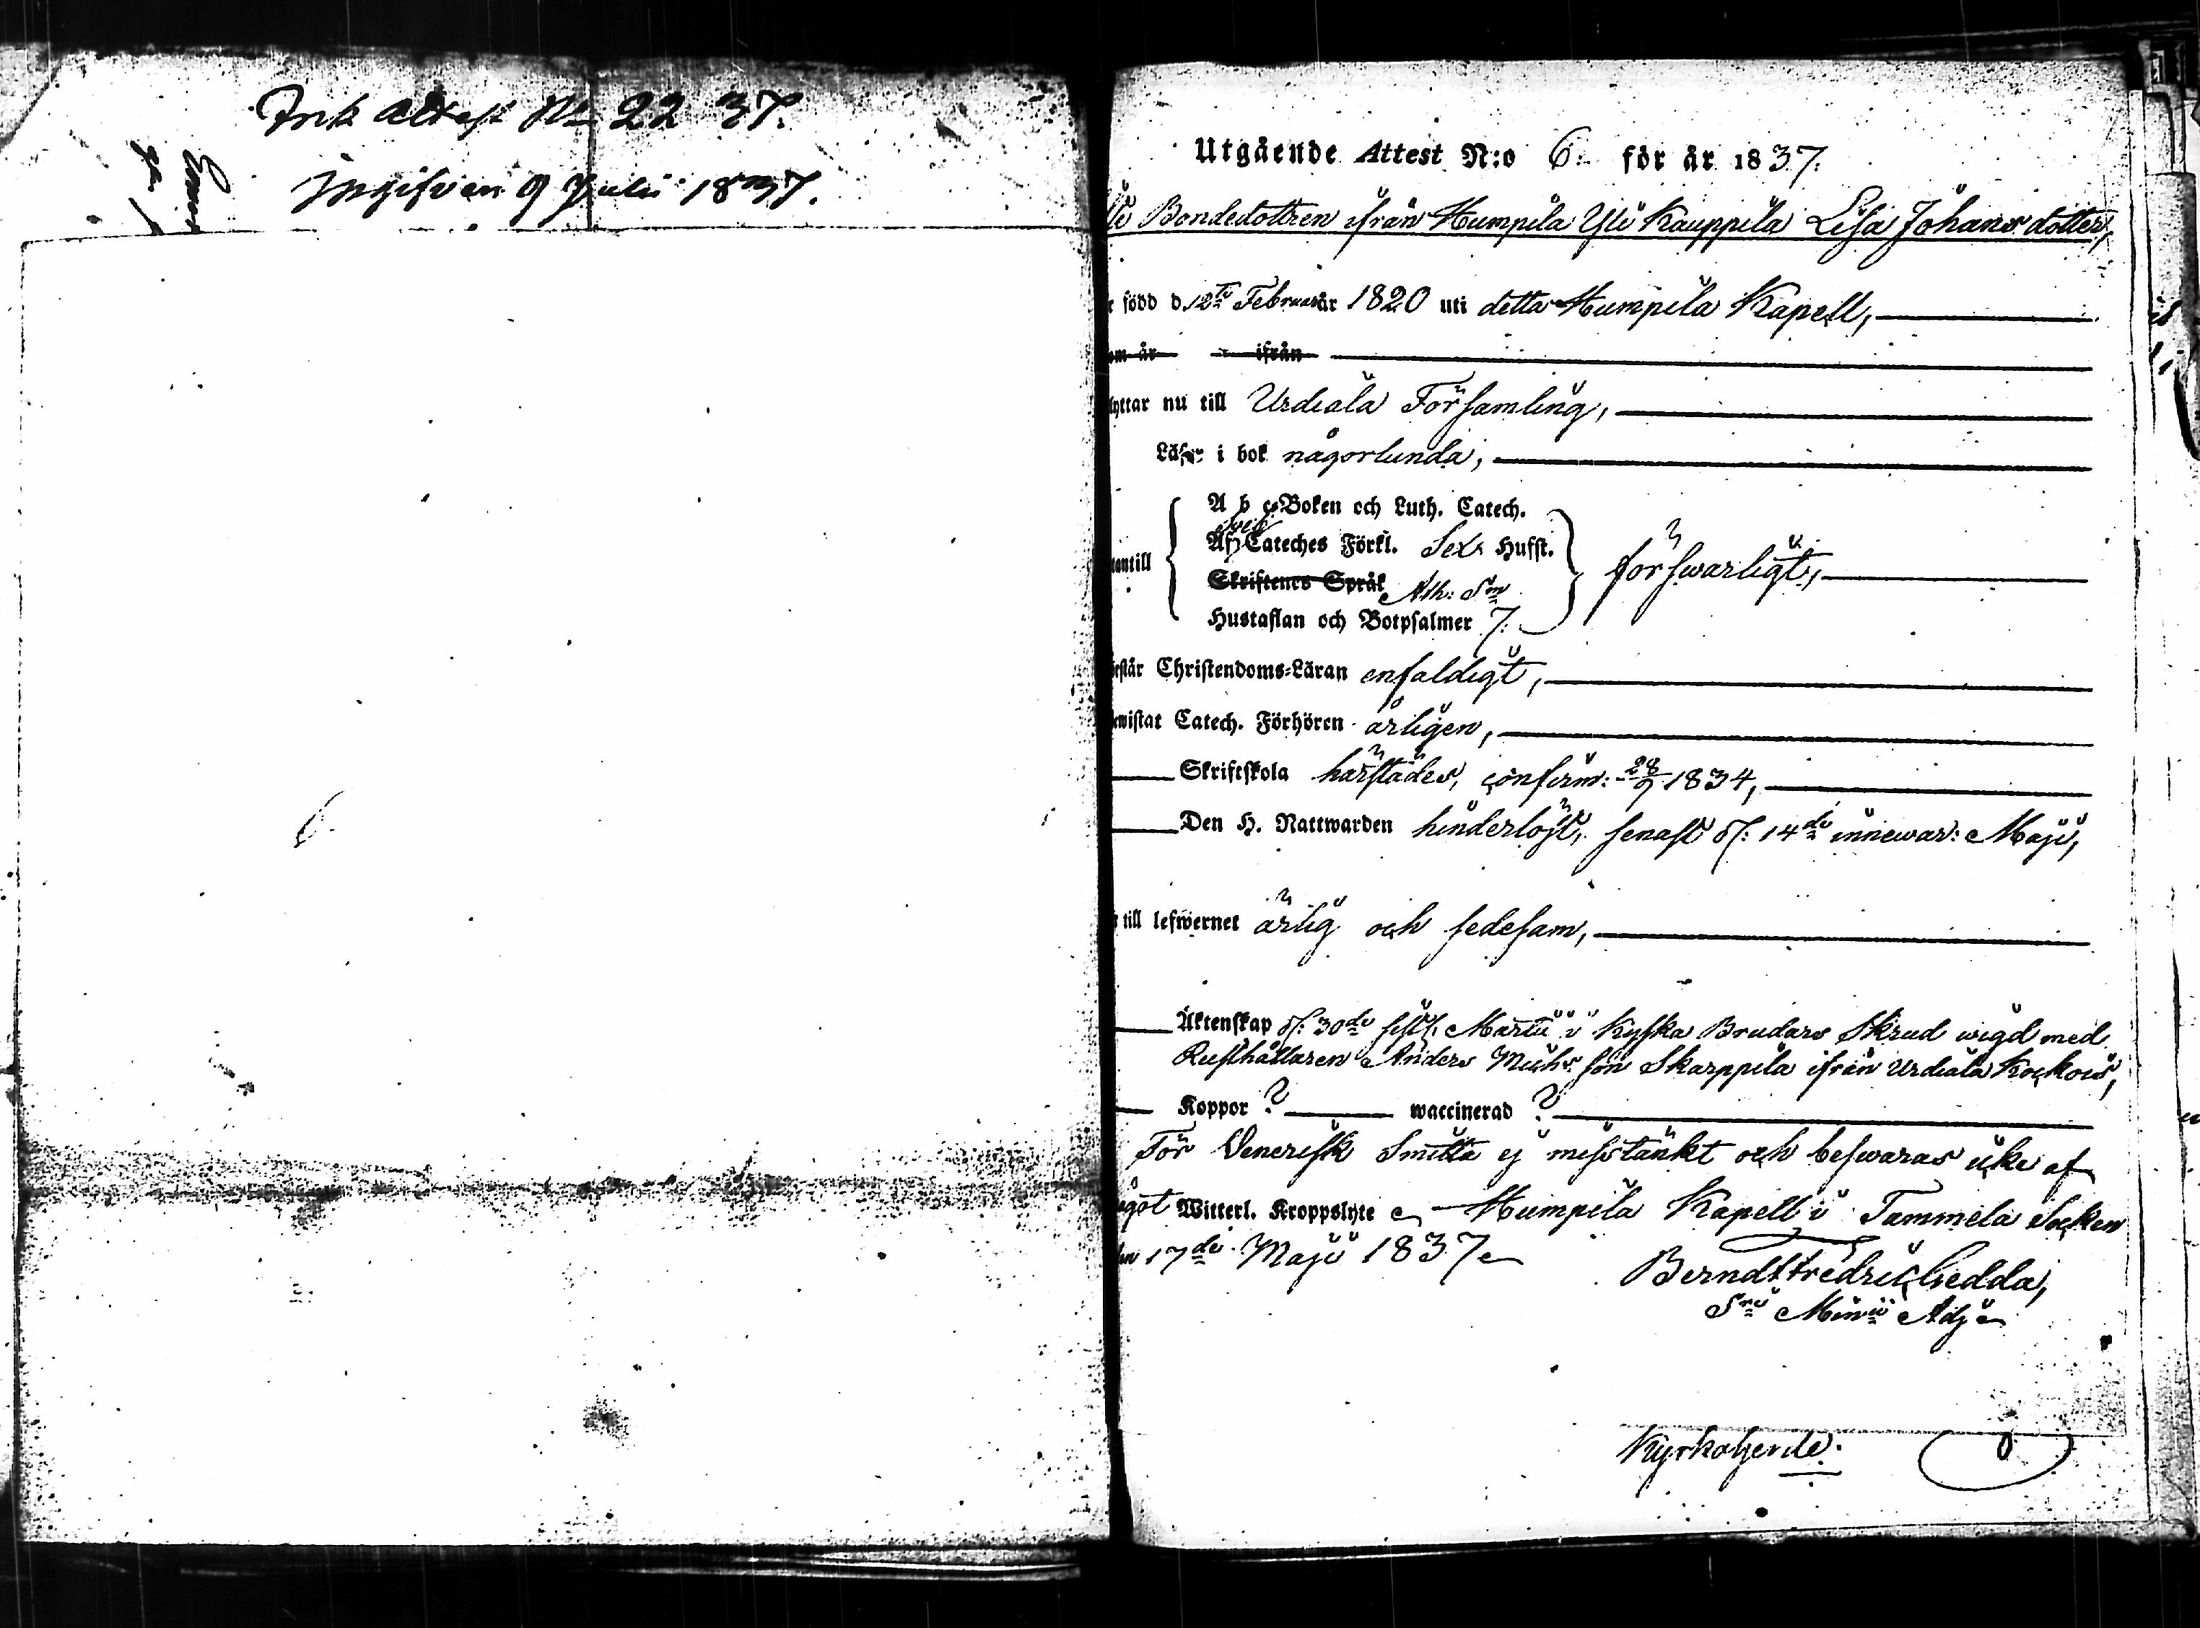 Ink Attest No 22 37.
Ingifven 9 Julii 1837.
Utgående Attest N:o 6. för år 1837.
Bondedottren ifrån Humpila Yli Kauppila Lisa Johans dotter,
född d. 12te Februar år 1820 uti detta Humpila Kapell,
om år ifrån
lyttar nu till Urdiala Församling,
Läser i bok någorlunda,
A b c-Boken och Luth. Catech.
Af Cateches Förkl. Sex Hufst.
antill försvarligt,
Skriftenes Språk Ath: Sm
Hustaflan och Botpsalmer 7.
rstår Christendoms-Läran enfaldigt,
ewistat Catech. Förhören årligen,
Skriftskola härstädes, confirm: 28/9 1834,
Den H. Nattwarden hinderlöst, senast d. 14de innewar: Maji,
till lefwernet ärlig och sedesam,
Äktenskap d. 30de sistl. Martii i Kyska Brudars Skrud wigd med
Rusthållaren Anders Michs son Skarppila ifrån Urdiala Kockois,
Koppor ? waccinerad ?
För Venerisk Smitta ej misstänkt och beswaras icke af
ågot Witterl. Kroppslyte Humpila Kapell i Tammela Socken
en 17de Maji 1837
Berndt Fredric Gedda,
Sri Minii Adj
Kyrkoherde.